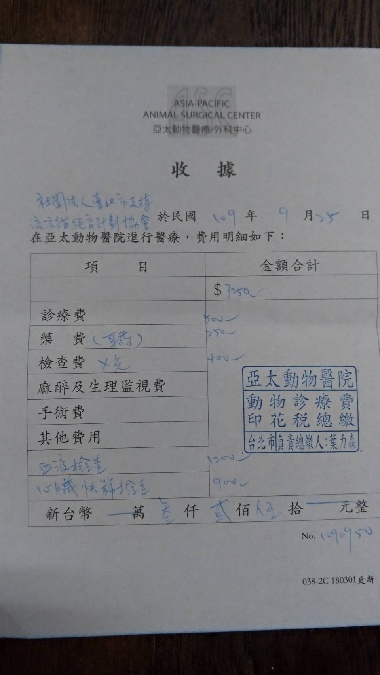 ASC
ASIA-PACIFIC
ANIMAL SURGICAL CENTER
亞太動物醫療/外科中心
收 據
社團法人臺北市支持
流浪貓絕育計劃協會 於民國 109 年 9 月 25 日
在亞太動物醫院進行醫療，費用明細如下：
項 目 金額合計
$ 3250
診療費 500
藥 費 250
檢查費 X光 400
麻醉及生理監視費
手術費
其他費用
亞太動物醫院
動物診療費
印花稅總繳
台北市負責總繳人:葉力森
血液檢查 1200
心臟快篩檢查 900
新台幣 萬 叁 仟 貳 佰 伍 拾 元整
No. 1090950
038-2C 180301更新